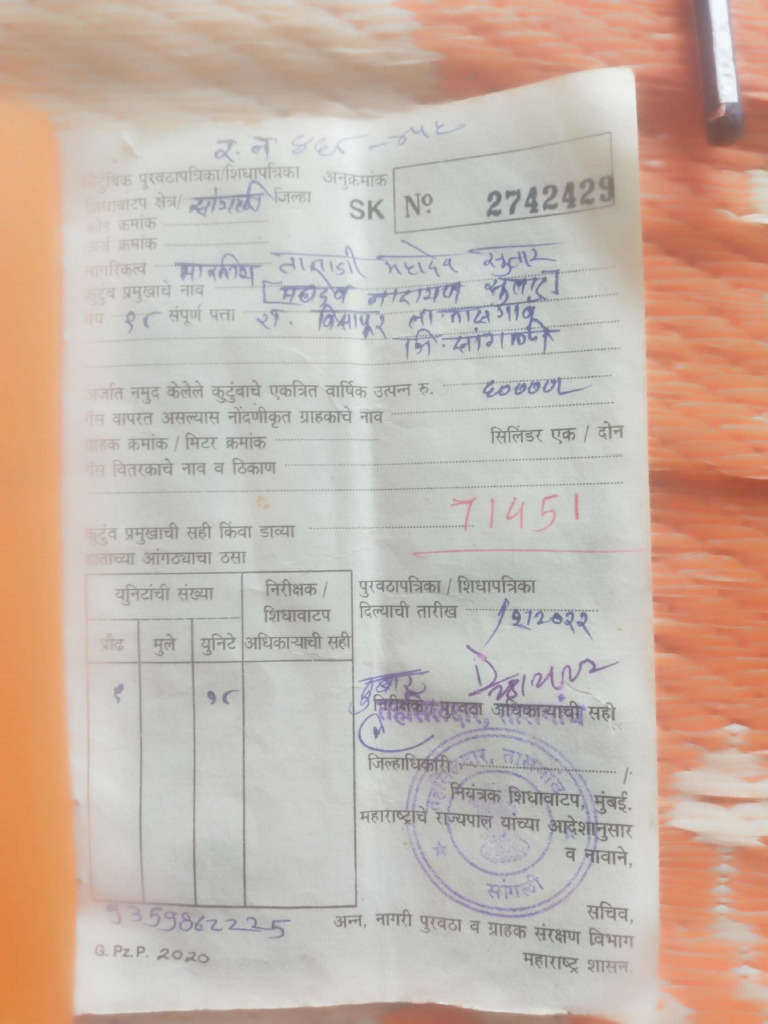 र. न
कौटुंबिक पुरवठापत्रिका/शिधापत्रिका अनुक्रमांक
शिधावाटप क्षेत्र/ सांगली जिल्हा SK Nº 2742429
कार्ड क्रमांक
अर्ज क्रमांक
नागरिकत्व भारतीय तानाजी महादेव सुतार
कुटुंब प्रमुखाचे नाव [महादेव नारायण सुतार]
वय १८ संपूर्ण पत्ता रा. विसापूर ता. तासगाव
जि. सांगली
अर्जात नमुद केलेले कुटुंबाचे एकत्रित वार्षिक उत्पन्न रु.
गॅस वापरत असल्यास नोंदणीकृत ग्राहकाचे नाव
ग्राहक क्रमांक / मिटर क्रमांक सिलिंडर एक / दोन
गॅस वितरकाचे नाव व ठिकाण
71451
कुटुंब प्रमुखाची सही किंवा डाव्या
हाताच्या आंगठ्याचा ठसा
युनिटांची संख्या निरीक्षक / शिधावाटप अधिकाऱ्याची सही
प्रौढ मुले युनिटे
१ १८
पुरवठापत्रिका / शिधापत्रिका
दिल्याची तारीख
निरीक्षक / पुरवठा अधिकाऱ्यांची सही
जिल्हाधिकारी /
नियंत्रक शिधावाटप, मुंबई.
महाराष्ट्राचे राज्यपाल यांच्या आदेशानुसार
व नावाने,
तहसिलदार, तासगांव
सांगली
सचिव,
9359862225 अन्न, नागरी पुरवठा व ग्राहक संरक्षण विभाग
G. Pz. P. 2020 महाराष्ट्र शासन